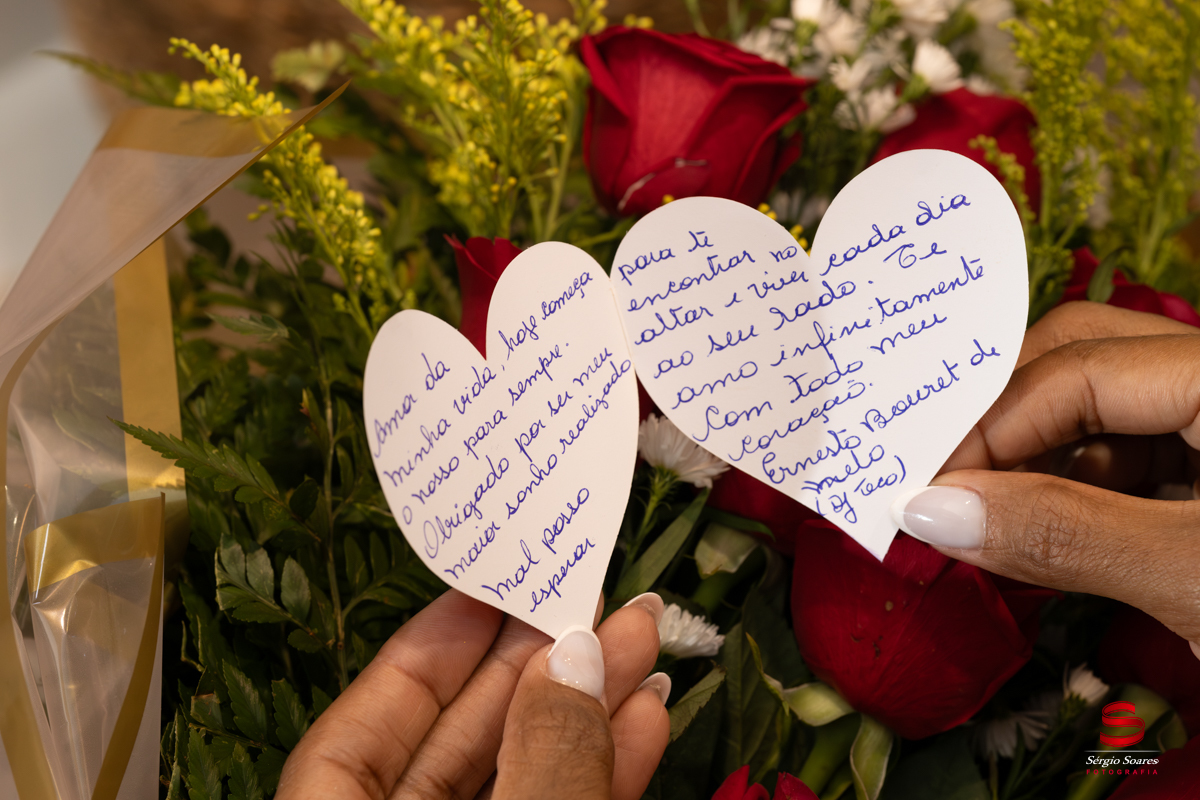 Amor da
minha vida, hoje começa
o nosso para sempre.
Obrigado por ser meu
maior sonho realizado
Mal posso
esperar
para te
encontrar no
altar e viver cada dia
ao seu lado. Te
amo infinitamente
Com todo meu
coração.
Ernesto Beauret de
melo
(Dj Teco)
Sérgio Soares
FOTOGRAFIA